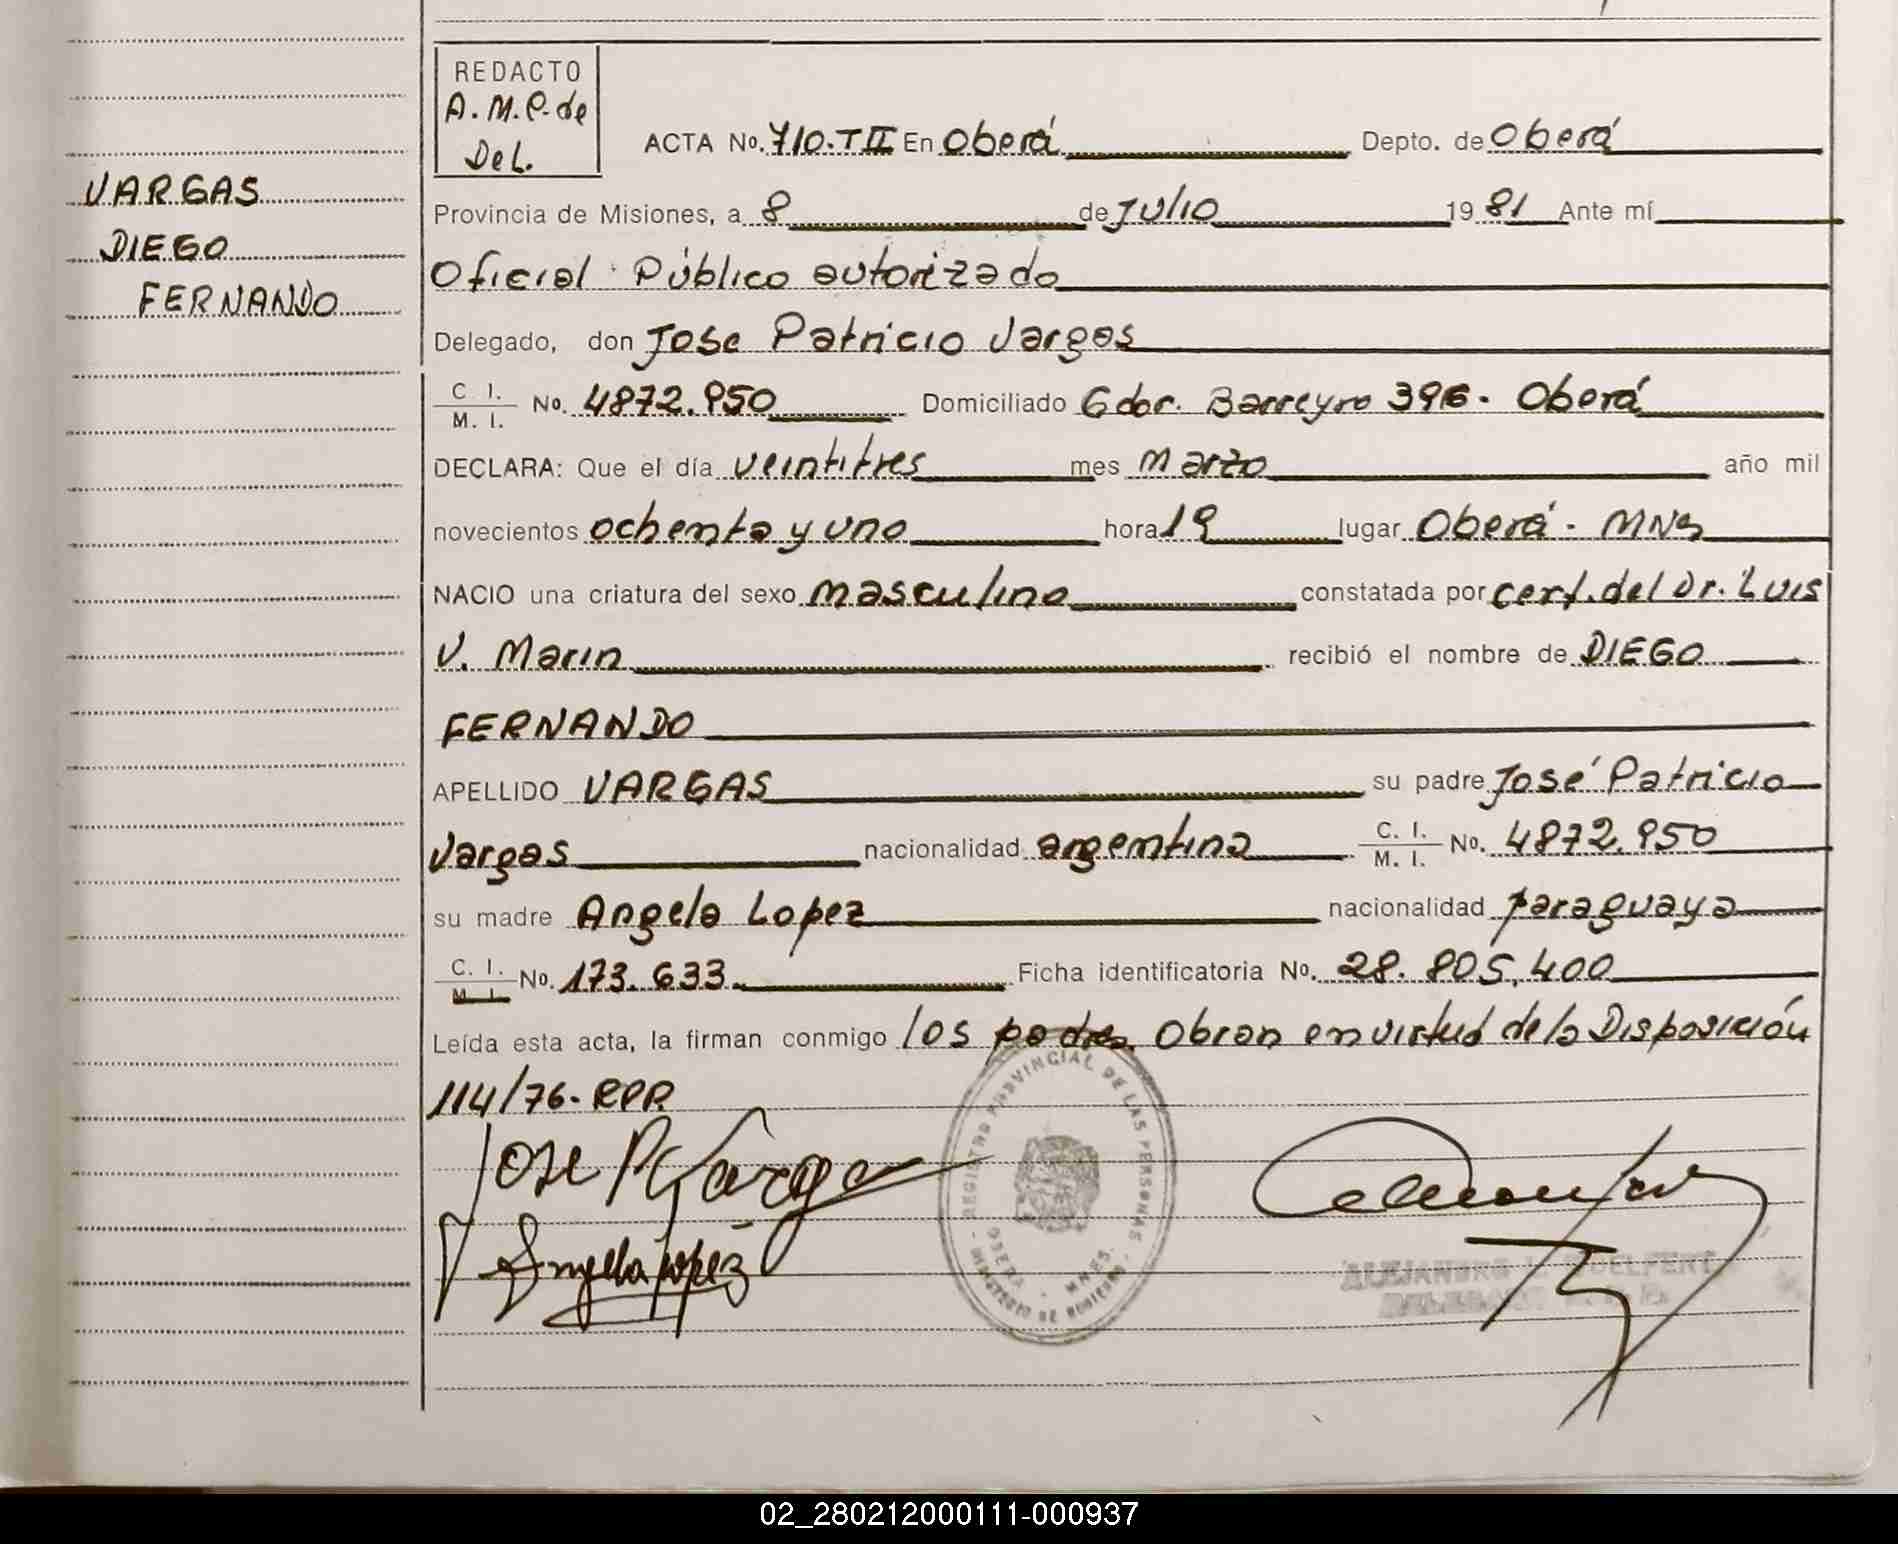 REDACTO
A. M. P. de
Del.
ACTA No. 710. T II En Oberá Depto. de Oberá
VARGAS
DIEGO
FERNANDO
Provincia de Misiones, a 8 de Julio 19 81 Ante mí
Oficial Público autorizado
Delegado, don Jose Patricio Vargas
C. I.
M. I. No. 4872.950 Domiciliado Gdor. Barreyro 396. Oberá
DECLARA: Que el día veintitres mes Marzo año mil
novecientos ochenta y uno hora 19 lugar Oberá - MNS
NACIO una criatura del sexo masculino constatada por cert. del Dr. Luis
V. Marin recibió el nombre de DIEGO
FERNANDO
APELLIDO VARGAS su padre José Patricio
Vargas nacionalidad argentina C. I.
M. I. No. 4872.950
su madre Angela Lopez nacionalidad paraguaya
C. I.
M. I. No. 173.633 Ficha identificatoria No. 28.805.400
Leída esta acta, la firman conmigo los padres. Obran en virtud de la Disposición
114/76. RPP.
Jose P Vargas
Angela López
REGISTRO PROVINCIAL DE LAS PERSONAS
OBERA - MNES.
MINISTERIO DE GOBIERNO
02_280212000111-000937